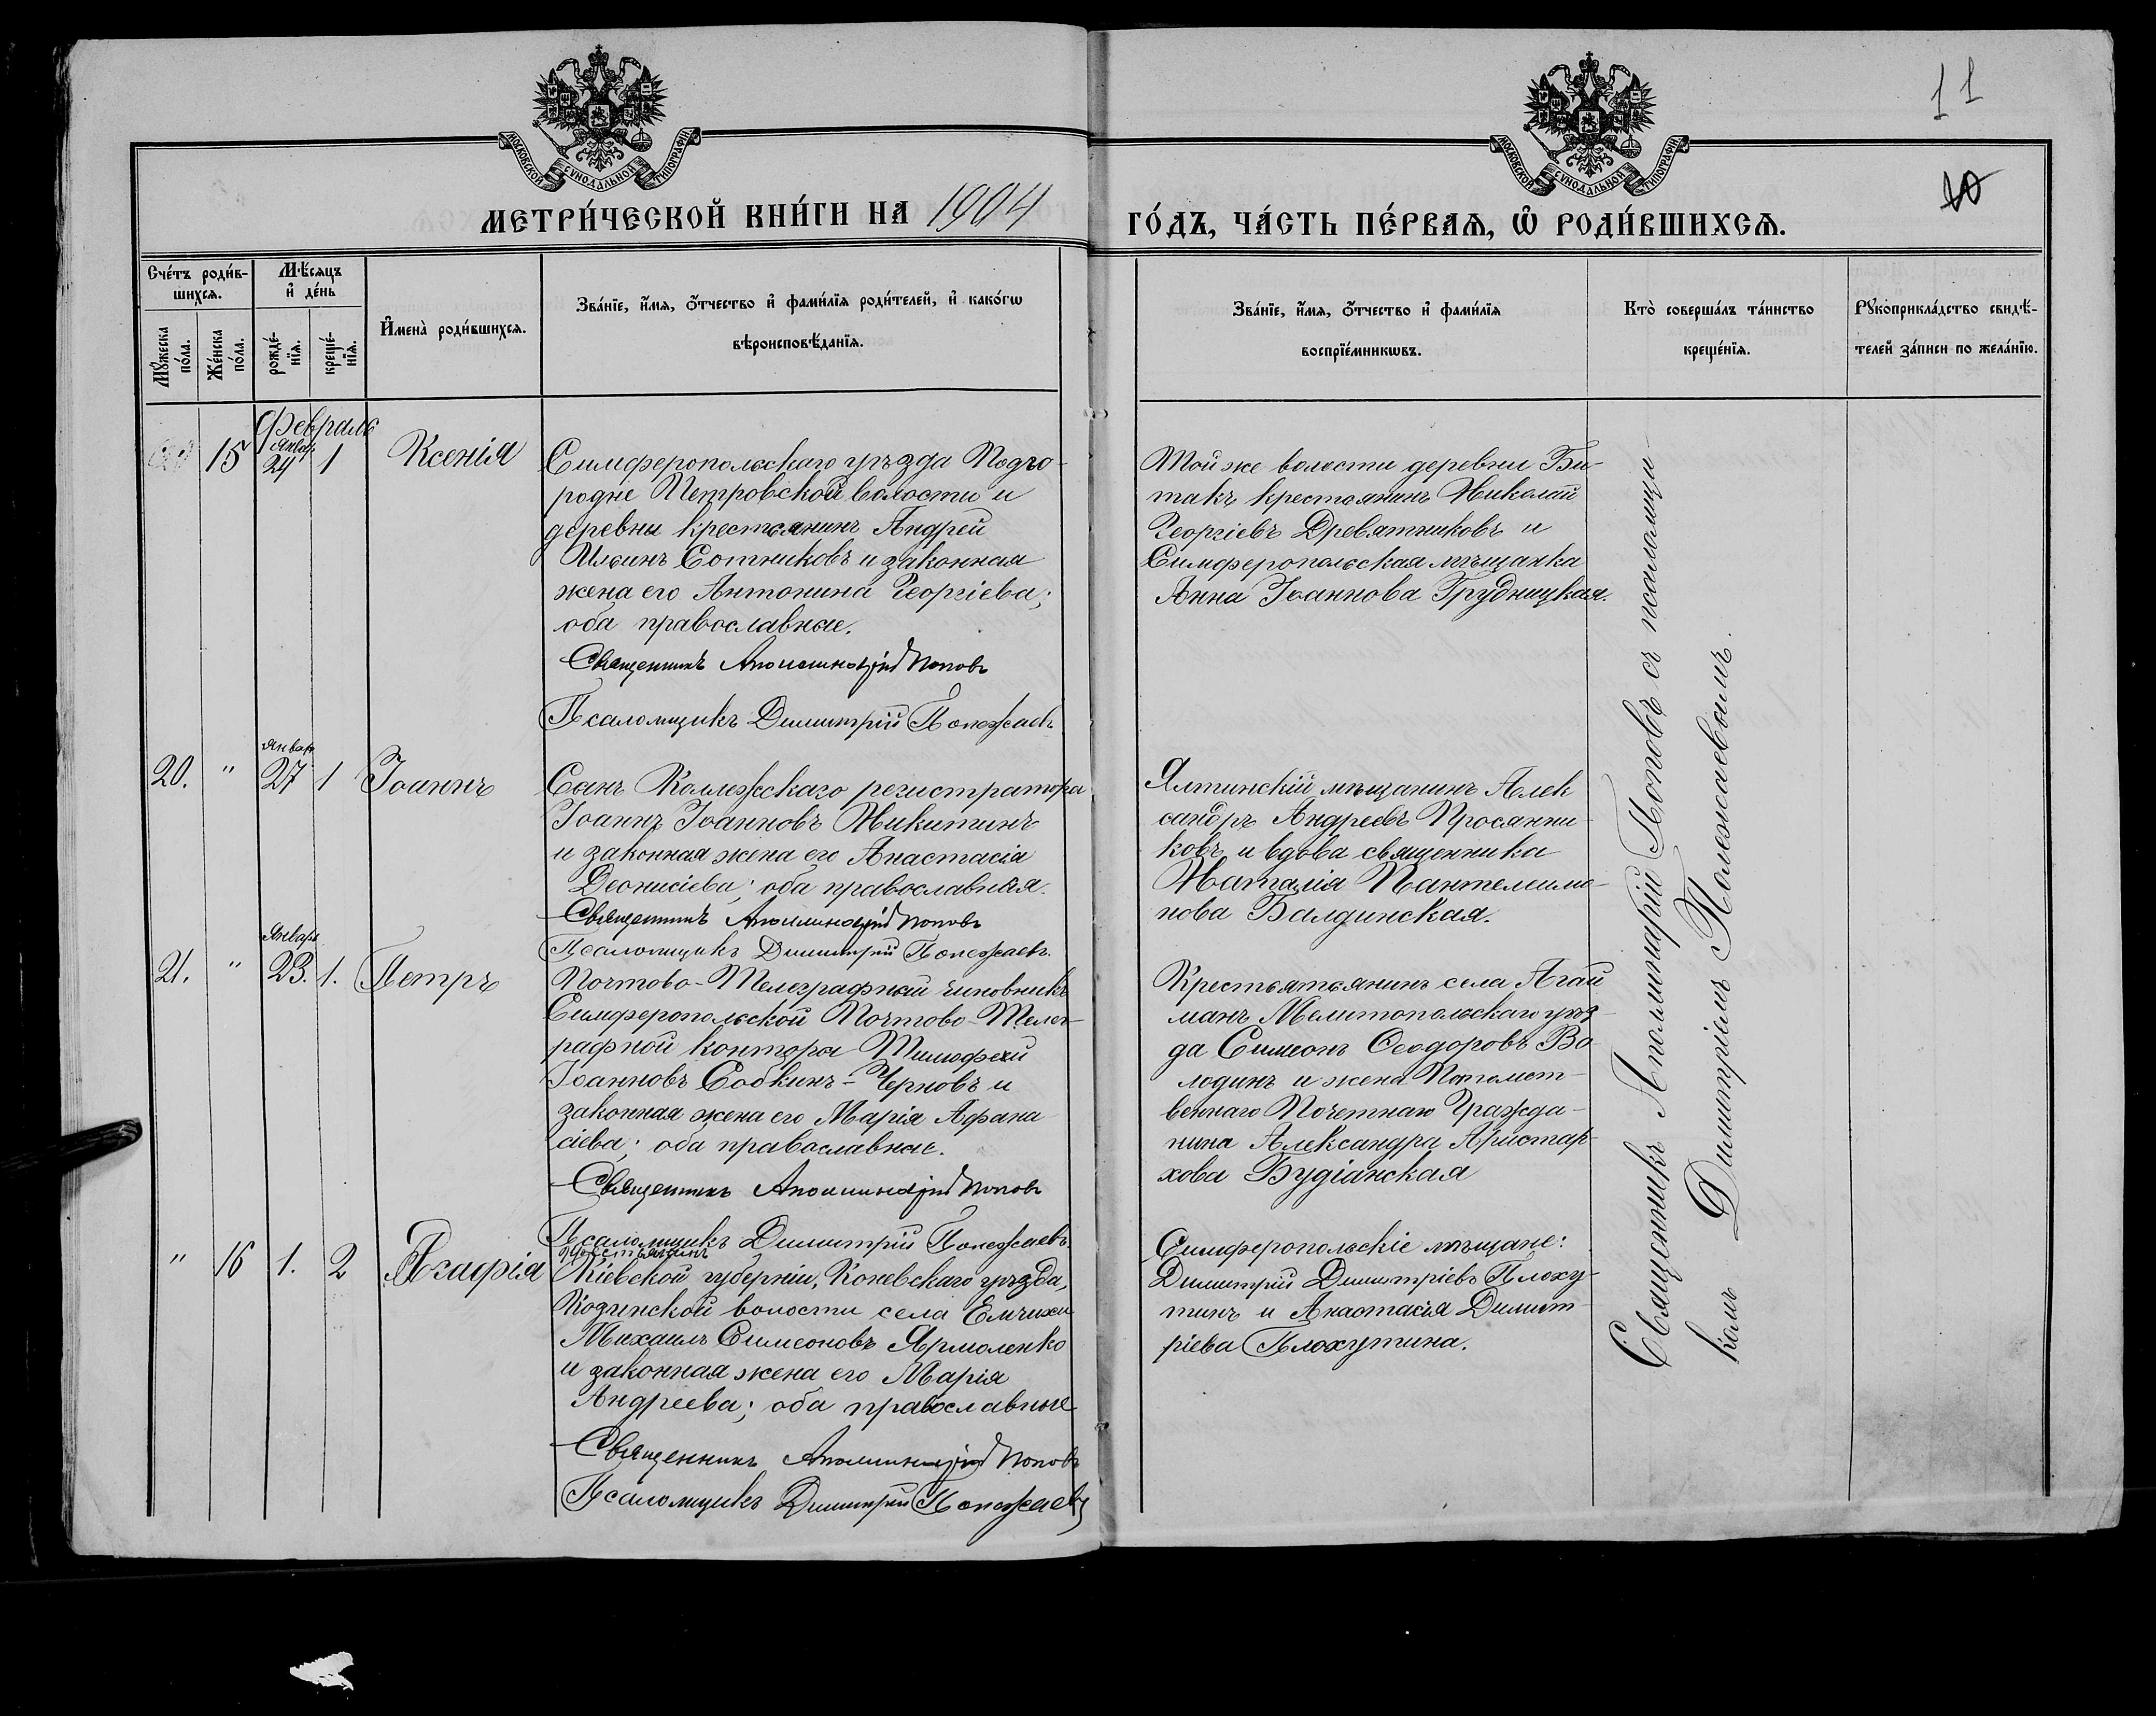 11
10
МОСКОВСКОЙ СѴНОДАЛЬНОЙ ТИПОГРАФІИ
МОСКОВСКОЙ СѴНОДАЛЬНОЙ ТИПОГРАФІИ
МЕТРИ́ЧЕСКОЙ КНИ́ГИ НА 1904
ГО́ДЪ, ЧА́СТЬ ПЕ́РВАѦ, Ѽ РОДИ́ВШИХСѦ.
Сче́тъ роди́в-
шихсѧ.
Мѣ́сѧцъ
и҆ де́нь
Мꙋ́жеска по́ла.
Же́нска по́ла.
рожде́-
нїѧ.
креще́-
нїѧ.
И҆мена̀ роди́вшихсѧ.
Зва́нїе, и҆́мѧ, ѻ҆́тчество и҆ фами́лїѧ роди́телей, и҆ како́гѡ
вѣроисповѣ́данїѧ.
Зва́нїе, и҆́мѧ, ѻ҆́тчество и҆ фами́лїѧ
воспрїе́мникѡвъ.
Кто̀ соверша́лъ та́инство
креще́нїѧ.
Рꙋкоприкла́дство свидѣ́-
телей за́писи по жела́нїю.
Февраль
Январ
15 24 1 Ксенія
Симферопольскаго уѣзда Подго-
родне Петровской волости и
деревни крестьянинъ Андрей
Ильинъ Сотниковъ и законная
жена его Антонина Георгіева;
оба православные.
Священникъ Аполлинарій Поповъ
Псаломщикъ Димитрій Полежаевъ
Той же волости деревни Би-
такъ крестьянинъ Николай
Георгіевъ Древятниковъ и
Симферопольская мѣщанка
Анна Іоаннова Грудницкая.
Январ
20. " 27 1 Іоаннъ
Сынъ Коллежскаго регистратора
Іоаннъ Іоанновъ Никитинъ
и законная жена его Анастасія
Деонисіева; оба православныя.
Священникъ Аполлинарій Поповъ
Псаломщикъ Димитрій Полежаевъ.
Ялтинскій мѣщанинъ Алек
сандръ Андреевъ Просянни-
ковъ и вдова священника
Наталія Пантелеимо-
нова Балдинская.
Январь
21. " 23. 1. Петръ
Почтово-Телеграфный чиновникъ
Симферопольской Почтово-Телег-
рафной конторы Тимофей
Іоанновъ Собкинъ-Черновъ и
законная жена его Марія Афана
сіева; оба православные.
Священникъ Аполлинарій Поповъ
Псаломщикъ Димитрій Полежаевъ.
Крестьятьянинъ села Агай
манъ Мелитопольскаго уѣз-
да Симеонъ Ѳеодоровъ Во-
лодинъ и жена Потомст-
веннаго Почетнаго Гражда-
нина Александра Аристар-
хова Будіанская
крестьянинъ
" 16 1. 2 Агафія
Кіевской губерніи, Каневскаго уѣзда,
Козинской волости села Емчихи
Михаилъ Симеоновъ Ярмоленко
и законная жена его Марія
Андреева; оба православные
Священникъ Аполлинарій Поповъ
Псаломщикъ Димитрій Полежаевъ
Симферопольскіе мѣщане:
Димитрій Димитріевъ Плоху-
тинъ и Анастасія Димит-
ріева Плохутина.
Священникъ Аполлинарій Поповъ съ псаломщи-
комъ Димитріемъ Полежаевымъ.